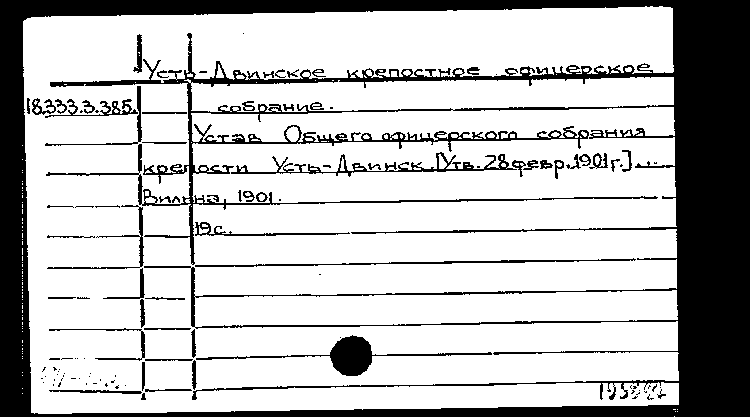 Усть-Двинское крепостное офицерское
18.333.3.385. собрание.
Устав Общего офицерского собрания
крепости Усть-Двинск. [Утв. 28 февр. 1901 г.]...
Вильна, 1901.
19 с.